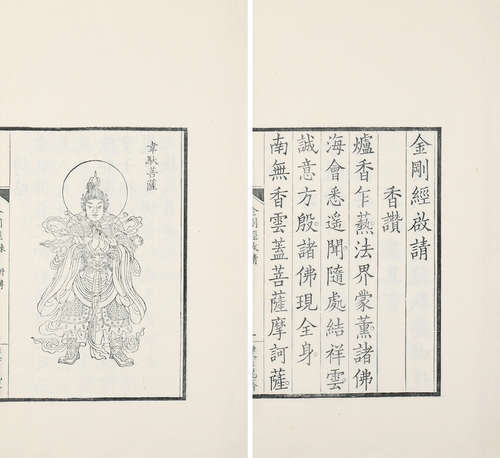 金剛經啟請
香讚
爐香乍爇法界蒙薰諸佛
海會悉遙聞隨處結祥雲
誠意方殷諸佛現全身
南無香雲蓋菩薩摩訶薩
韋馱菩薩